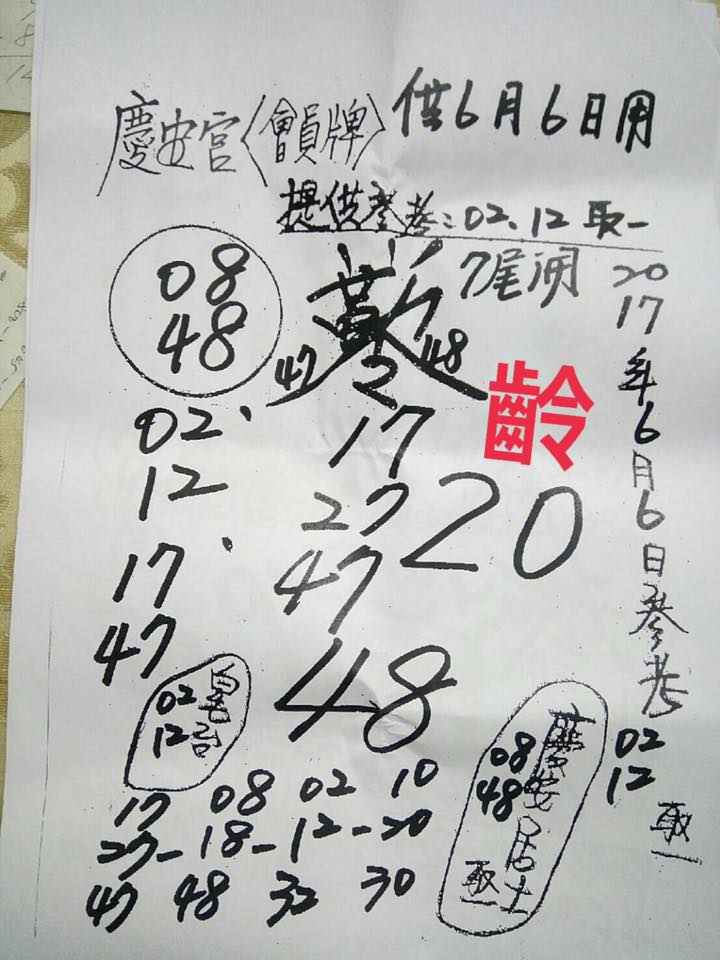 慶安宮〈會員牌〉供6月6日用
提供參考:02、12取一
7尾開
2017年6月6日參考
02
12
取一
08
48
47 2 48
齡
02、
12
17、
47
17
27
47
20
48
02
12
08
48
慶安居士
取一
17 08 02 10
27-18-12-20
47 48 32 30